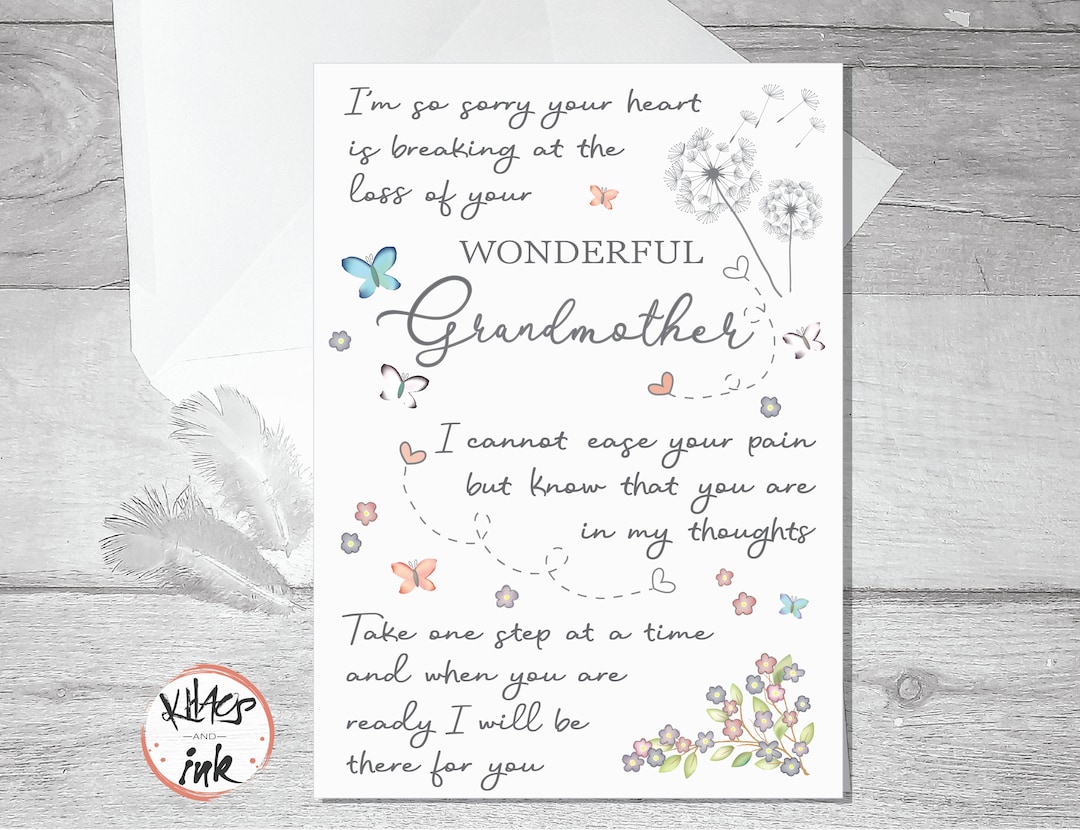 I'm so sorry your heart
is breaking at the
loss of your
WONDERFUL
Grandmother
I cannot ease your pain
but know that you are
in my thoughts
Take one step at a time
and when you are
ready I will be
there for you
KHAOS
AND
ink